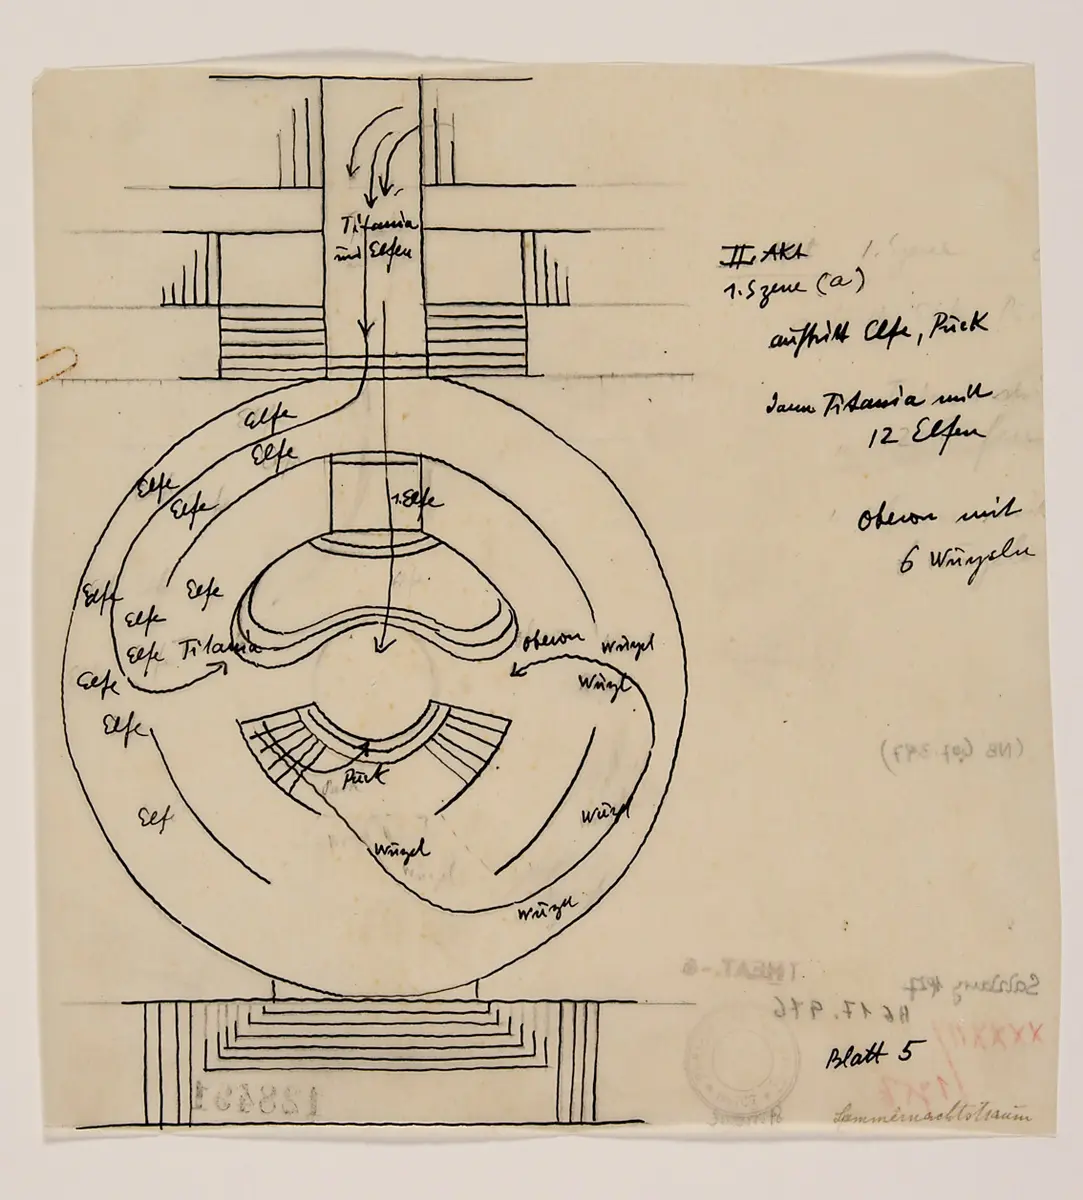 Titania
und Elfen
II. Akt
1. Szene (a)
auftritt Elfe, Puck
dann Titania mit
12 Elfen
Oberon mit
6 Wurzeln
Elfe
Elfe
Elfe
Elfe
1. Elfe
Elfe
Elfe
Elfe
Elfe Titania
Oberon
Wurzl
Elfe
Wurzl
Elfe
Puck
Elf
Wurzl
Wurzel
Wurzl
(NB 607.397)
THEAT.-6
Salzburg 1927
AG 17.976
XXXXII/
Blatt 5
128491
Sommernachtstraum